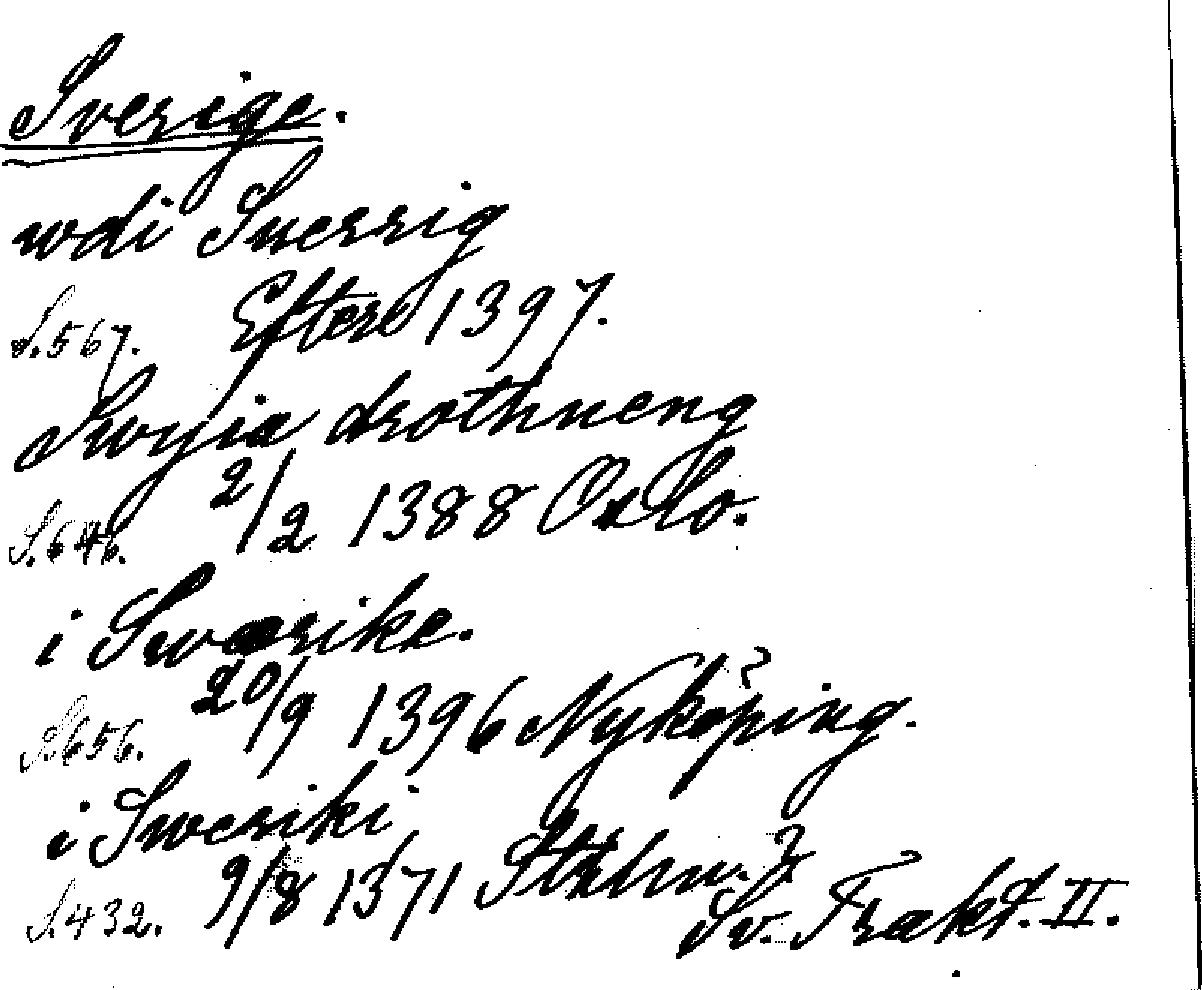 Sverige.
wdi Suerrig
S.567. Efter 1397.
Swyia drothneng
S.646. 2/2 1388 Oslo.
i Swærike.
S.656. 20/9 1396 Nyköping.
i Sweriki
S.432. 9/8 1371 Sthlm.?
Sv. Trakt. II.